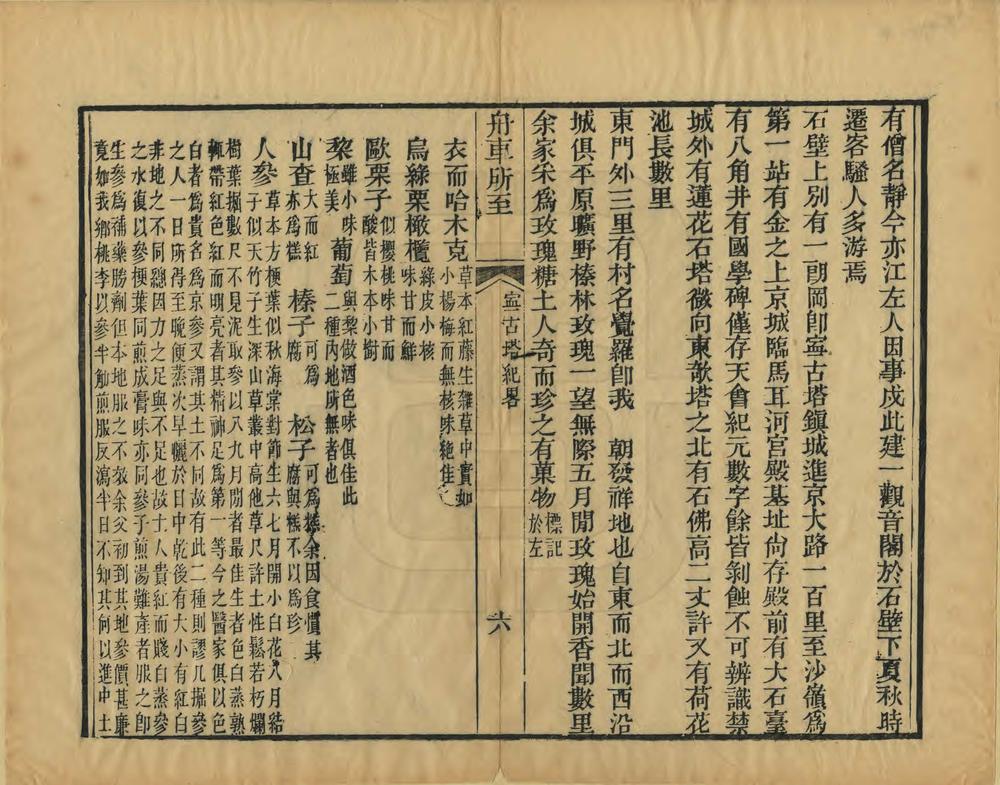 有僧名靜今亦江左人因事戍此建一觀音閣於石壁下夏秋時
遷客騷人多游焉
石壁上別有一朗岡卽寗古塔鎭城進京大路一百里至沙嶺爲
第一站有金之上京城臨馬耳河宮殿基址尙存殿前有大石臺
有八角井有國學碑僅存天會紀元數字餘皆剝蝕不可辨識禁
城外有蓮花石塔微向東欹塔之北有石佛高二丈許又有荷花
池長數里
東門外三里有村名覺羅卽我　朝發祥地也自東而北而西沿
城俱平原曠野榛林玫瑰一望無際五月間玫瑰始開香聞數里
余家釆爲玫瑰糖土人奇而珍之有菓物標記於左
舟車所至
寗古塔紀畧
六
衣而哈木克草本紅藤生雜草中實如小楊梅而無核味絶佳
烏綠栗橄欖綠皮小核味甘而鮮
歐栗子似櫻桃味甘而酸皆木本小樹
棃雖小味極美　葡萄與棃做酒色味俱佳此二種內地所無者也
山查大而紅亦爲糕　榛子可爲腐　松子可爲糕余因食慣其腐與糕不以爲珍
人參草本方梗葉似秋海棠對節生六七月開小白花八月結
子似天竹子生深山草叢中高他草尺許土性鬆若朽爛
樹葉掘數尺不見泥取參以八九月間者最佳生者色白蒸熟
輒帶紅色紅而明亮者其精神足爲第一等今之醫家俱以色
白者爲貴名爲京參又謂其土不同故有此二種則謬凡掘參
之人一日所得至晚便蒸次早曬於日中乾後有大小有紅白
非地之不同總因力之足與不足也故土人貴紅而賤白蒸參
之水復以參梗葉同煎成膏味亦同參子煎湯難產者服之卽
生參爲補藥勝劑但本地服之不效余父初到其地參價甚廉
竟如我鄉桃李以參半觔煎服反瀉半日不知其何以進中土